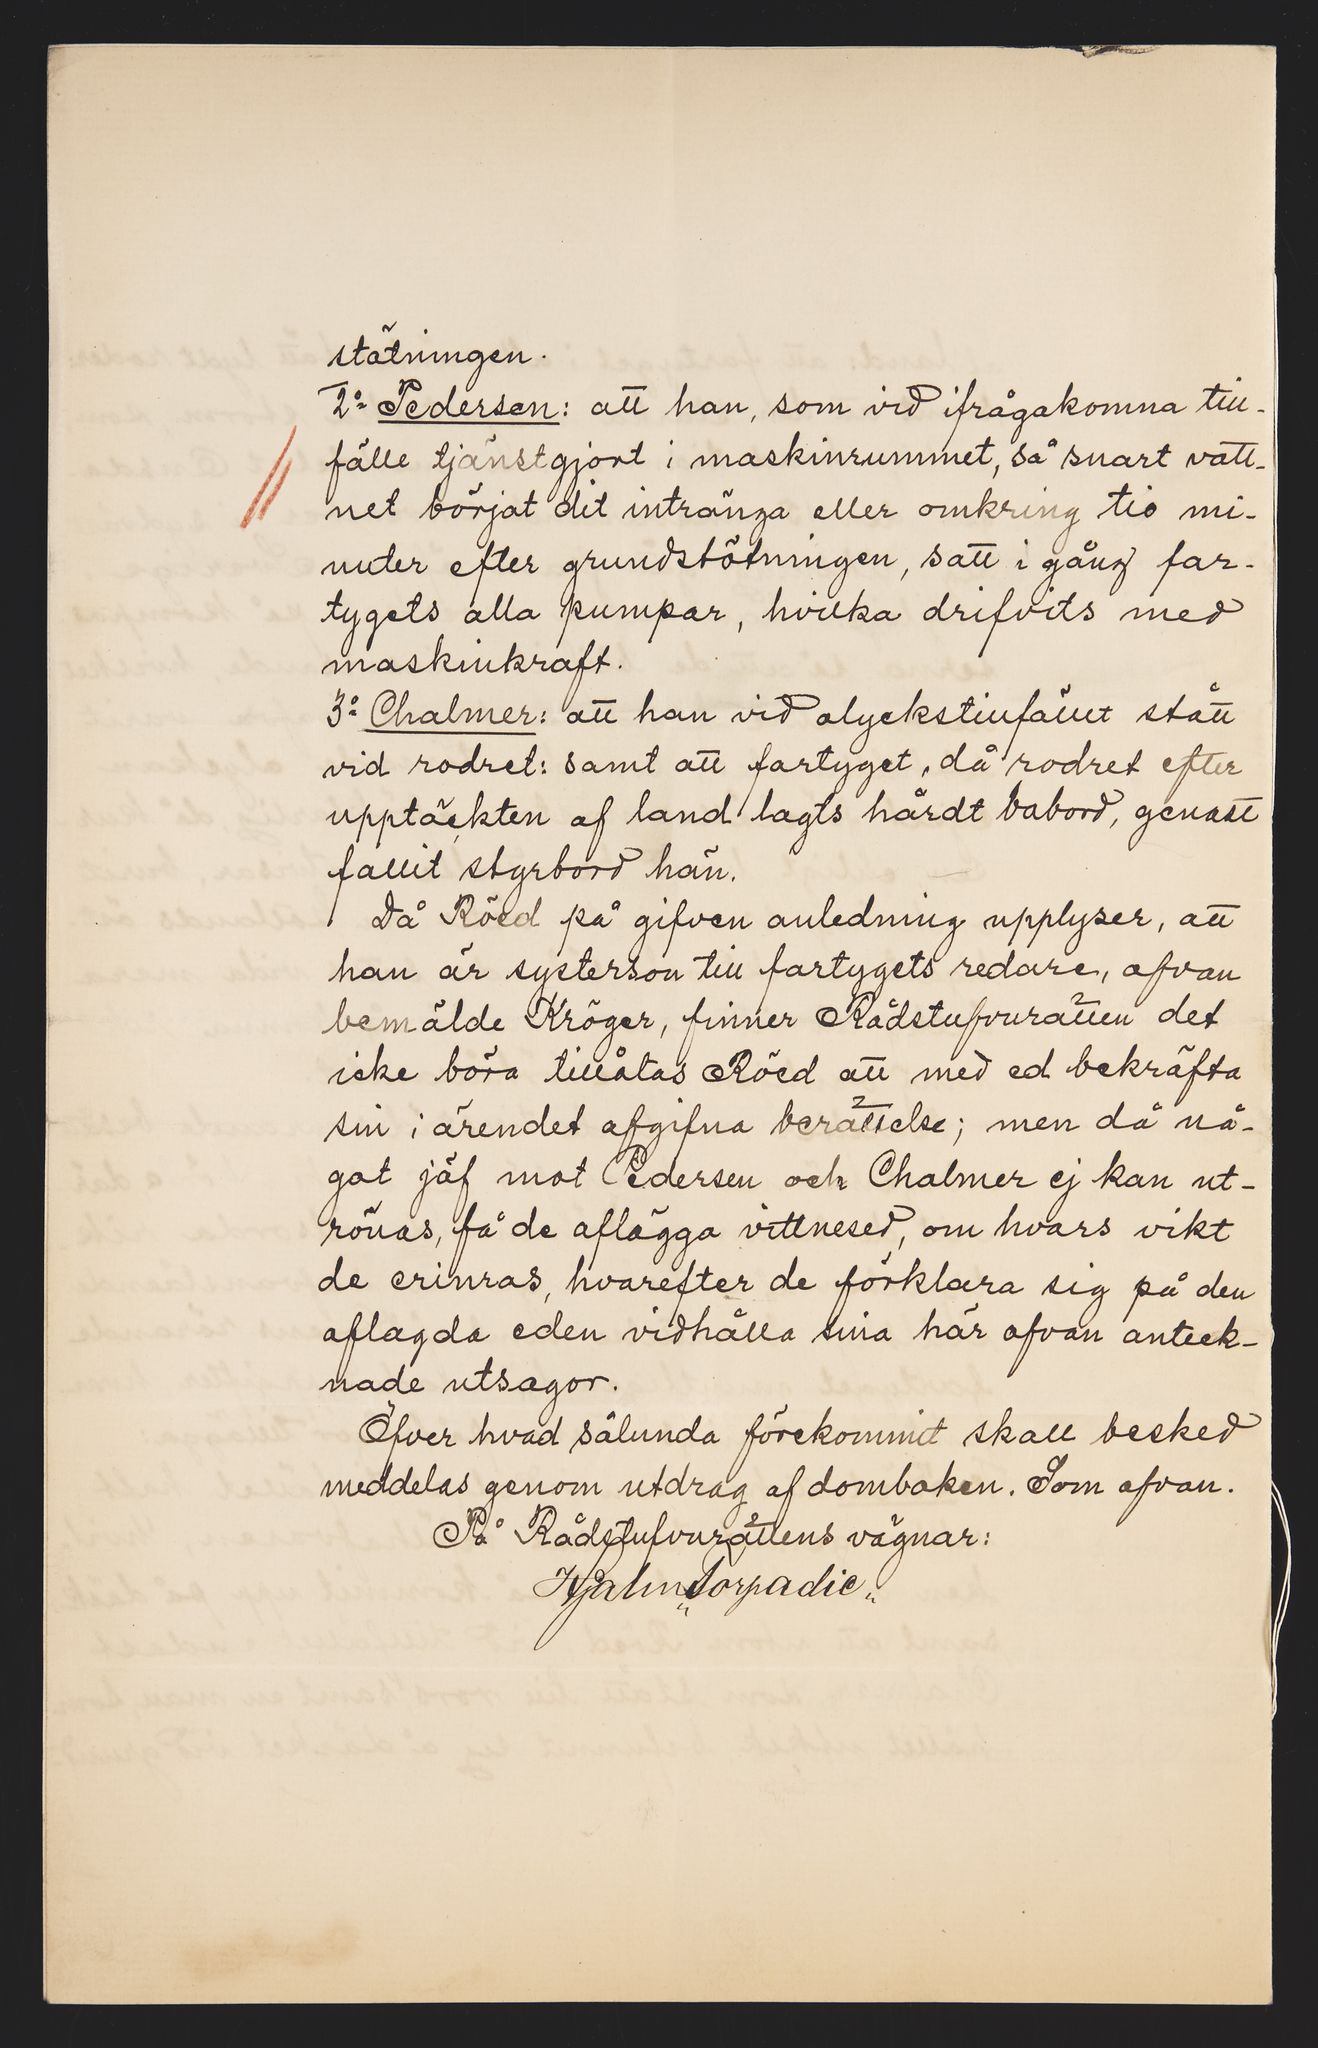 stötningen.
2º Pedersen: att han, som vid ifrågakomna till-
fälle tjänstgjort i maskinrummet, så snart vatt-
net börjat dit intränga eller omkring tio mi-
nuter efter grundstötningen, satt i gång far-
tygets alla pumpar, hvilka drifvits med
maskinkraft.
3º Chalmer: att han vid olyckstillfället stått
vid rodret: samt att fartyget, då rodret efter
upptäckten af land lagts hårdt babord, genast
fallit styrbord hän.
Då Röed på gifven anledning upplyser, att
han är systerson till fartygets redare, ofvan
bemälde Kröger, finner Rådstufvurätten det
icke böra tillåtas Röed att med ed bekräfta
sin i ärendet afgifna berättelse; men då nå-
got jäf mot Pedersen och Chalmer ej kan ut-
rönas, få de aflägga vittnesed, om hvars vikt
de erinras, hvarefter de förklara sig på den
aflagda eden vidhålla sina här ofvan anteck-
nade utsagor.
Öfver hvad sålunda förekommit skall besked
meddelas genom utdrag af domboken. Som ofvan.
På Rådstufvurättens vägnar:
Hjalm. Torpadie